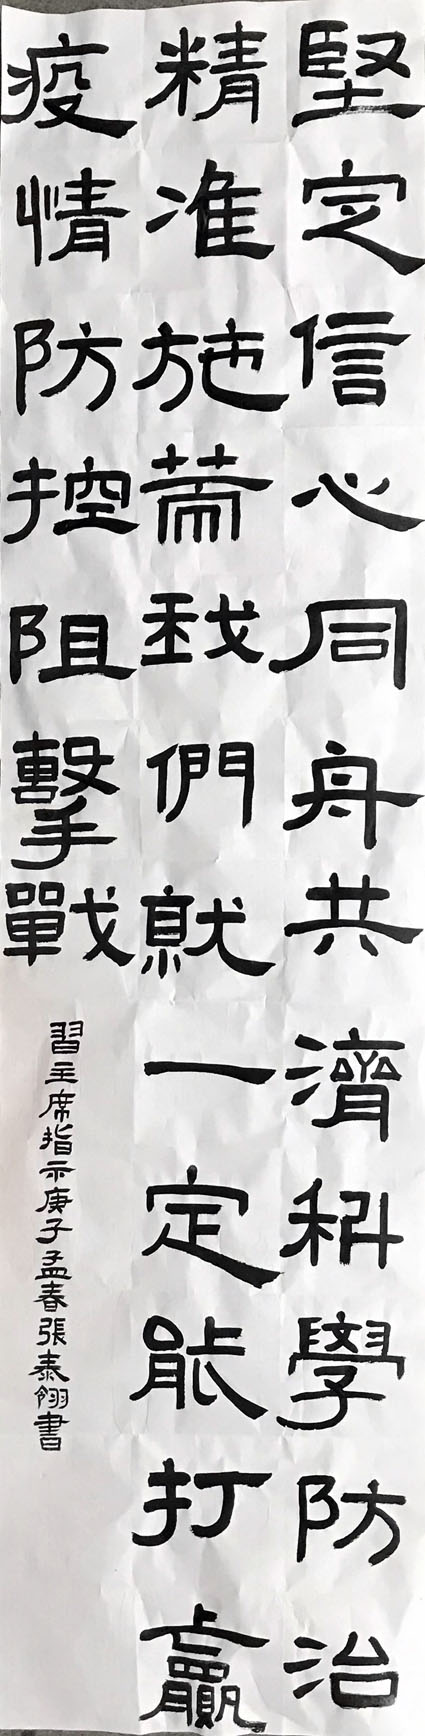 堅定信心同舟共濟科學防治
精准施策我們就一定能打贏
疫情防控阻擊戰
習主席指示庚子孟春張泰翎書